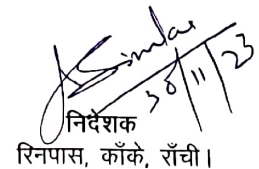 30/11/23
निदेशक
रिनपास, काँके, राँची।